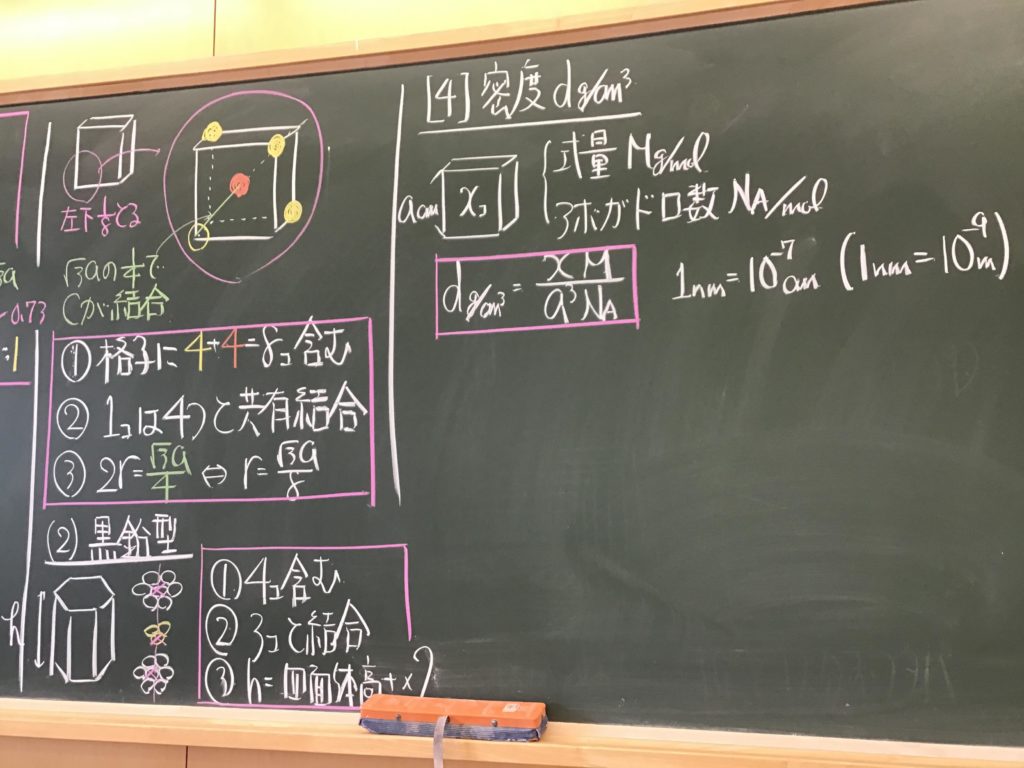 左下1/8とる
√3aの1/4で
Cが結合
√3a
0.73
:1
①格子に4+4=8コ含む
②1コは4つと共有結合
③2r=√3a/4 ⇔ r=√3a/8
(2)黒鉛型
h
①4コ含む
②3コと結合
③h=四面体高+x
[4]密度dg/cm³
acm
xコ
式量 Mg/mol
アボガドロ数 NA/mol
dg/cm³ = xM/a³NA
1nm=10⁻⁷cm (1nm=10⁻⁹m)